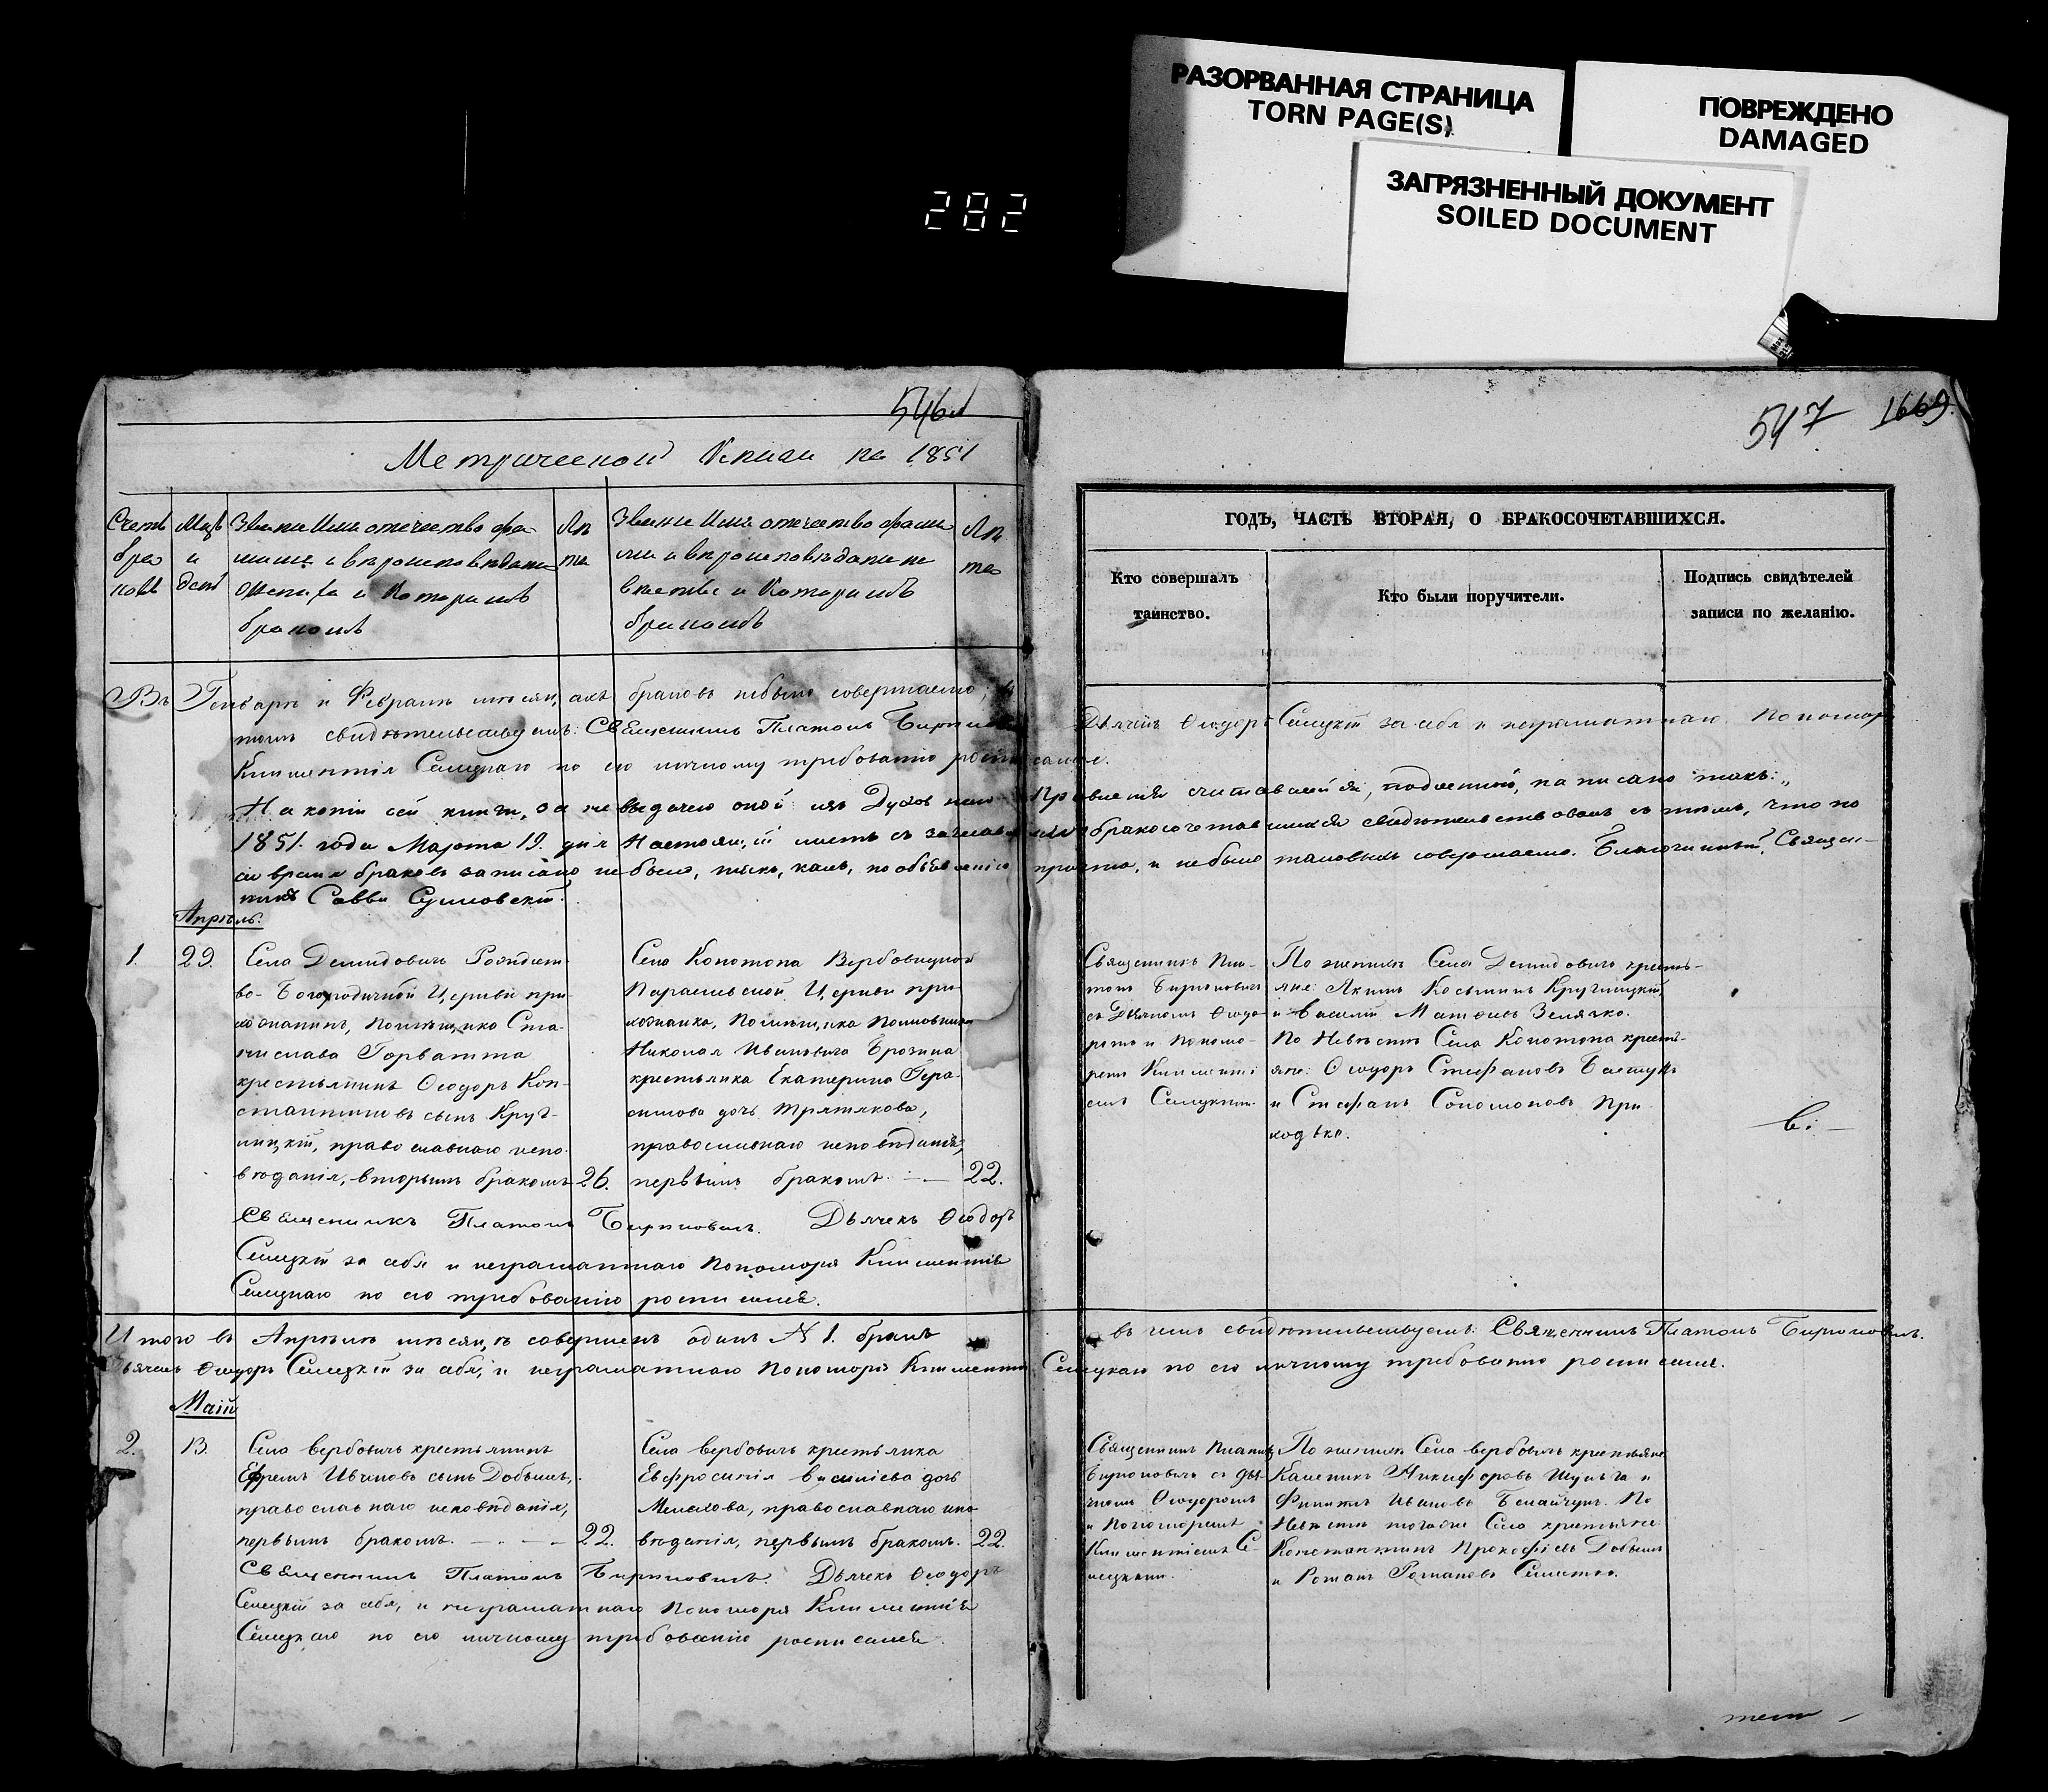 РАЗОРВАННАЯ СТРАНИЦА
TORN PAGE(S)
ПОВРЕЖДЕНО
DAMAGED
ЗАГРЯЗНЕННЫЙ ДОКУМЕНТ
SOILED DOCUMENT
282
546
Метрической Книги на 1851
547 1669.
ГОДЪ, ЧАСТЬ ВТОРАЯ, О БРАКОСОЧЕТАВШИХСЯ.
Счетъ
бра
ковъ
Мцъ
и
день
Званіе Имя отечество фа-
милія и вѣроисповѣданіе
жениха и Которымъ
бракомъ
Лѣ
та
Званіе Имя отечество фами
лія и вѣроисповѣданіе не
вѣсты и Которымъ
бракомъ
Лѣ
та
Кто совершалъ
таинство.
Кто были поручители.
Подпись свидѣтелей
записи по желанію.
Въ Генварѣ и Февралѣ мѣсяцахъ браковъ небыло совершаемо, въ
томъ свидѣтельствуемъ: Священникъ Платонъ Дьячекъ Ѳеодоръ Селецкій за себя и неграмотнаго Пономаря
Климентія Селецкаго по его личному требованію росписался.
На копіи сей книги, за не выдачею оной изъ Духов Правленія написано такъ: „
1851. года Марта 19. дня Настоящій листъ съ бракосочетавшихся свидѣтельствовалъ съ тѣмъ, что по
сіе время браковъ записано небыло, такъ, какъ, по объявленію причта, и небыло таковыхъ совершаемо. Благочинный, Священ-
никъ Савва
Апрѣль.
1.
29.
Села Демидовичъ Рождест-
во-Богородичной Церкви при-
хожанинъ, помѣщика Ста-
нислава Горватта
крестьянинъ Ѳеодоръ Кон-
стантиновъ сынъ Круг-
лицкій, православнаго испо-
вѣданія, вторымъ бракомъ
26.
Села Конотопа Вербовицкой
Параскевской Церкви при-
хожанка, помѣщика Полковника
Николая Ивановича Брозина
крестьянка Екатерина Гера-
симова дочь Третякова,
православнаго исповѣданія,
первымъ бракомъ.
22.
Священникъ Пла-
тонъ
съ Дьячкомъ Ѳеодо-
ромъ и Понома-
ремъ Климентi
емъ Селецкимъ.
По женихѣ Села Демидовичъ кресть-
яне: Акимъ Косьминъ Круглицкій,
и Василій Матѳеевъ Зелячко.
По Невѣстѣ Села Конотопа кресть-
яне: Ѳеодоръ Стефановъ
и Стефанъ Соломоновъ При
ходько.
Священникъ Платонъ Дьячекъ Ѳеодоръ
Селецкій за себя и неграмотнаго Пономаря Климентія
Селецкаго по его требованію росписался.
Итого въ Апрѣлѣ мѣсяцѣ совершенъ одинъ № 1. бракъ въ чемъ свидѣтельствуемъ: Священникъ Платонъ
Дьячекъ Ѳеодоръ Селецкій за себя, и неграмотнаго Пономаря Климентія Селецкаго по его личному требованію росписался.
Маій
2.
13.
Села Вербовичъ крестьянинъ
Ефремъ Ивановъ сынъ Добышъ,
православнаго исповѣданія,
первымъ бракомъ.
22.
Села Вербовичъ крестьянка
Евфросинія Василіева дочь
Мелехова, православнаго испо
вѣданія, первымъ бракомъ.
22.
Священникъ Платонъ
съ дья-
чкомъ Ѳеодоромъ
и Пономаремъ
Климентіемъ Се-
лецкимъ.
По женихѣ Села Вербовичъ крестьяне
Каленикъ Никифоровъ Шульга и
Филиппъ Ивановъ По
Невѣстѣ тогоже Села крестьяне
Константинъ Прокофіевъ Добышъ
и Романъ Романовъ
Священникъ Платонъ Дьячекъ Ѳеодоръ
Селецкій за себя, и неграмотнаго Пономаря Климентія
Селецкаго по его личному требованію росписался.